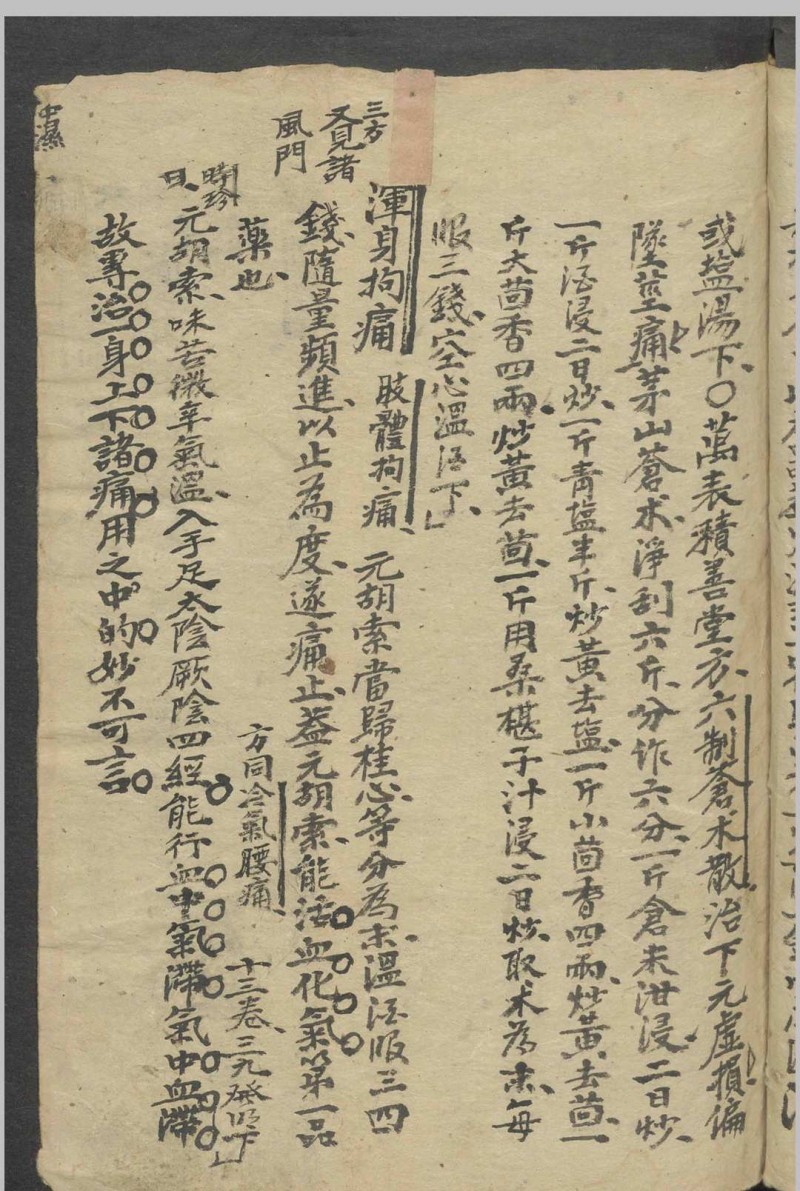 或塩湯下、○萬表積善堂方、六制蒼朮散治下元虛損偏
墜莖痛、茅山蒼朮、淨刮六斤、分作六分、一斤倉米泔浸二日炒、
一斤酒浸二日炒、一斤青塩半斤、炒黄去塩、一斤小茴香四兩、炒黄去茴、一
斤大茴香四兩、炒黄去茴、一斤用桑椹子汁浸二日炒、取朮為末、每
服三錢、空心溫酒下、」
三方
又見諸
風門
渾身拘痛 肢體拘痛、元胡索當歸桂心、等分為末、溫酒服三四
錢、隨量頻進、以止為度、遂痛止、蓋元胡索、能活血化氣第一品
藥也、 方同冷氣腰痛、 十三卷、三九發明下」
時珍
曰、元胡索、味苦微辛氣溫、入手足太陰厥陰四經、能行血中氣滯氣中血滯
故專治一身上下諸痛、用之中的、妙不可言
中濕